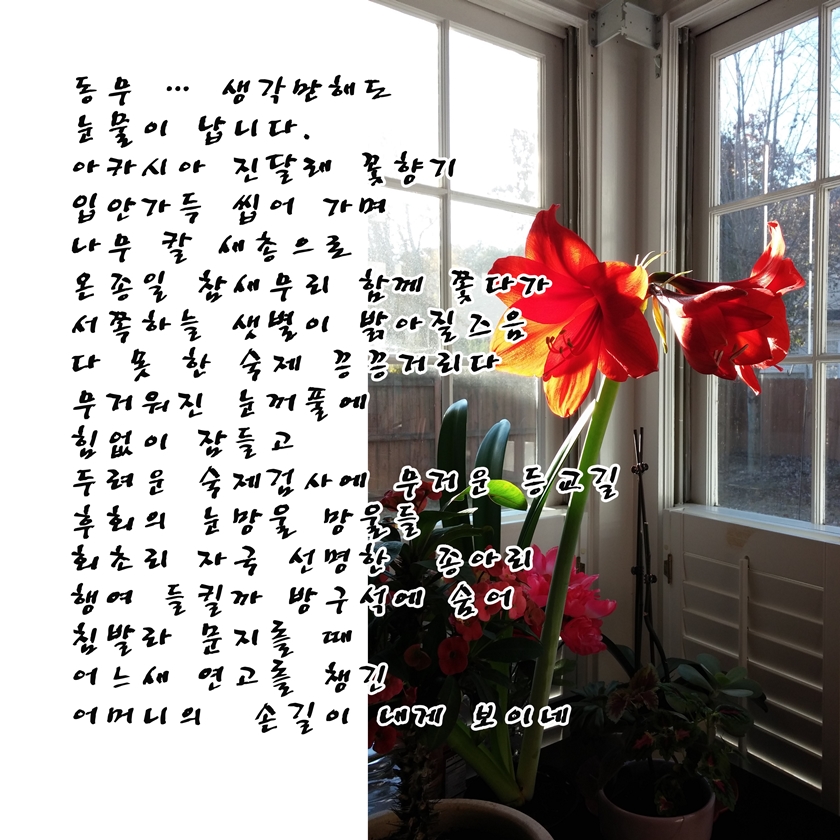 동무 … 생각만해도
눈물이 납니다.
아카시아 진달래 꽃향기
입안가득 씹어 가며
나무 칼 새총으로
온종일 참새무리 함께 쫓다가
서쪽하늘 샛별이 밝아질즈음
다 못 한 숙제 끙끙거리다
무거워진 눈꺼풀에
힘없이 잠들고
두려운 숙제검사에 무거운 등교길
후회의 눈망울 망울들
회초리 자국 선명한 종아리
행여 들킬까 방구석에 숨어
침발라 문지를 때
어느새 연고를 챙긴
어머니의 손길이 내게 보이네